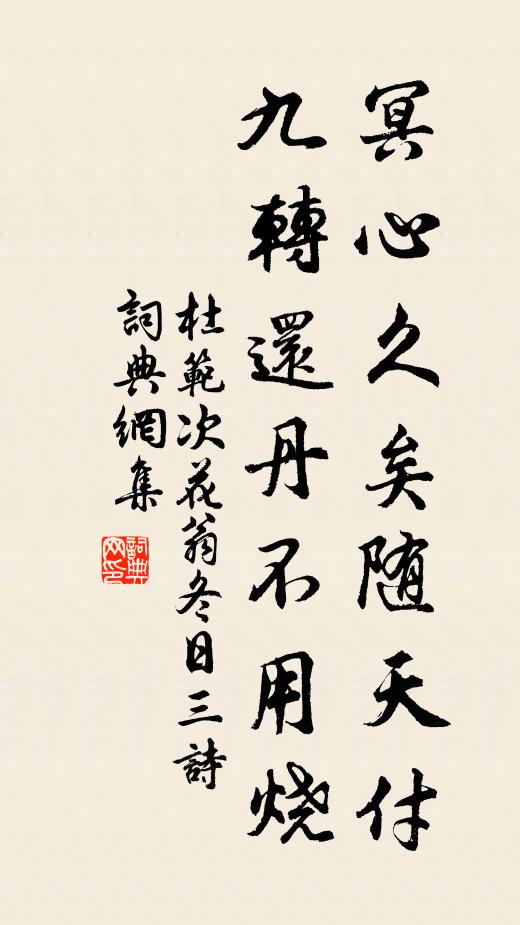 冥心久矣随天付
九轉還丹不用烧
杜範次花翁冬日三詩
詞典網集
詞典网印